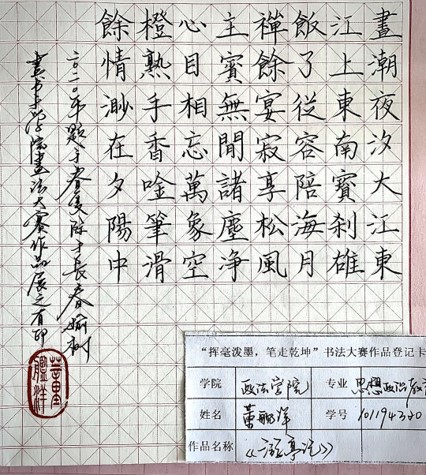 晝潮夜汐大江東
江上東南寶刹雄
飯了從容陪海月
禪餘宴寂享松風
主賓無間諸塵净
心目相忘萬象空
橙熟手香唫筆滑
餘情渺在夕陽中
二〇二〇年題于長春榆树
学院書法大赛作品展之
“挥毫泼墨，笔走乾坤”书法大赛作品登记卡
学院 政法学院 专业 思想政治教
姓名 董 洋 学号
作品名称